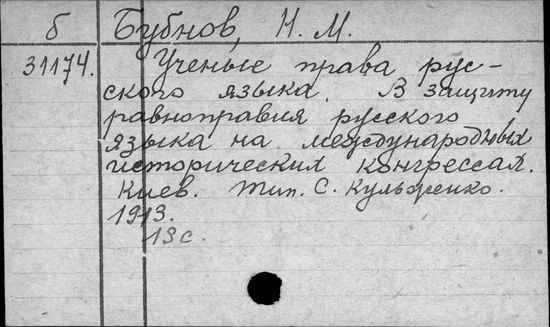 б Бубнов, Н. М.
31174. Ученые права рус-
ского языка. В защиту
равноправия русского
языка на международных
исторических конгрессах.
Киев. Тип. С. Кульженко.
1913.
13 с.